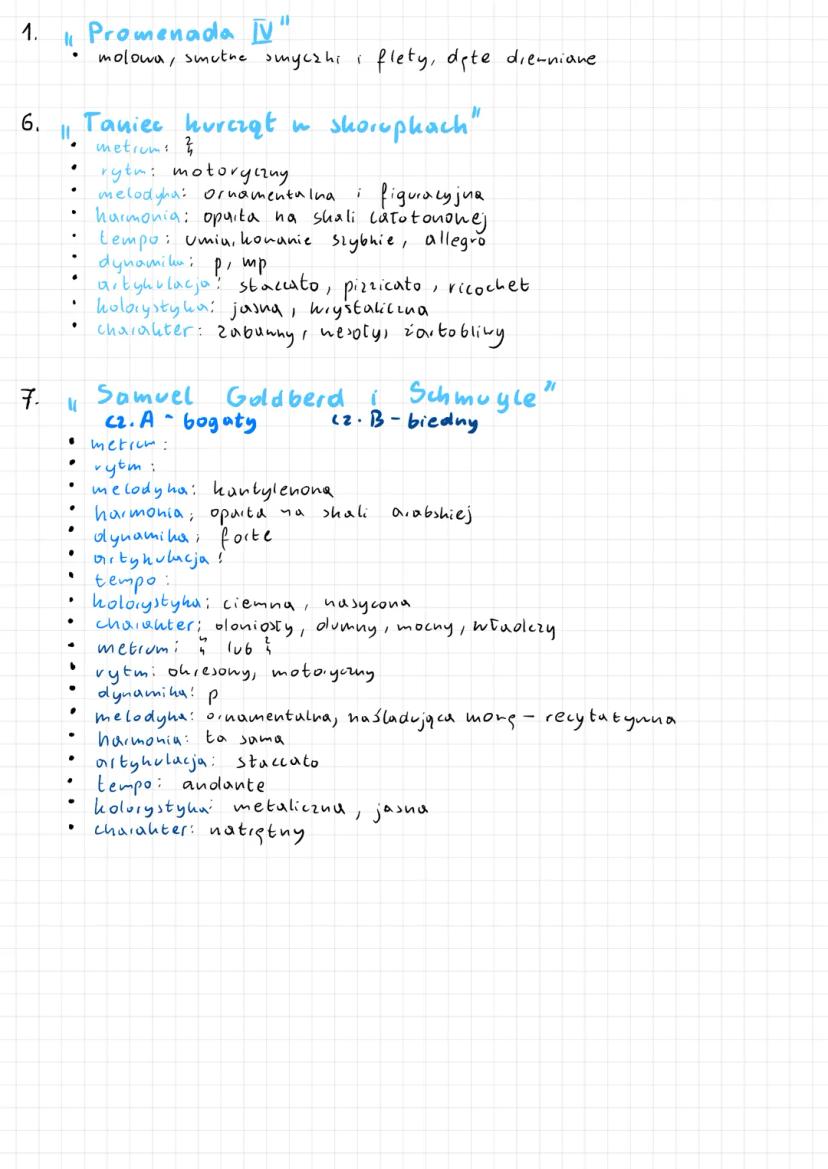 1. „Promenada IV"
• molowa, smutne smyczki i flety, dęte drewniane
6. „Taniec kurcząt w skorupkach"
• metrum: 2/4
• rytm: motoryczny
• melodyka: ornamentalna i figuracyjna
• harmonia: oparta na skali całotonowej
• tempo: umiarkowanie szybkie, allegro
• dynamika: p, mp
• artykulacja: staccato, pizzicato, ricochet
• kolorystyka: jasna, krystaliczna
• charakter: zabawny, wesoły, żartobliwy
7. „Samuel Goldberd i Schmuyle"
cz. A - bogaty cz. B - biedny
• metrum:
• rytm:
• melodyka: kantylenowa
• harmonia: oparta na skali arabskiej
• dynamika: forte
• artykulacja:
• tempo:
• kolorystyka: ciemna, nasycona
• charakter: doniosły, dumny, mocny, władczy
• metrum: 4/4 lub 2/4
• rytm: okresowy, motoryczny
• dynamika: p
• melodyka: ornamentalna, naśladująca mowę - recytatywna
• harmonia: ta sama
• artykulacja: staccato
• tempo: andante
• kolorystyka: metaliczna, jasna
• charakter: natrętny